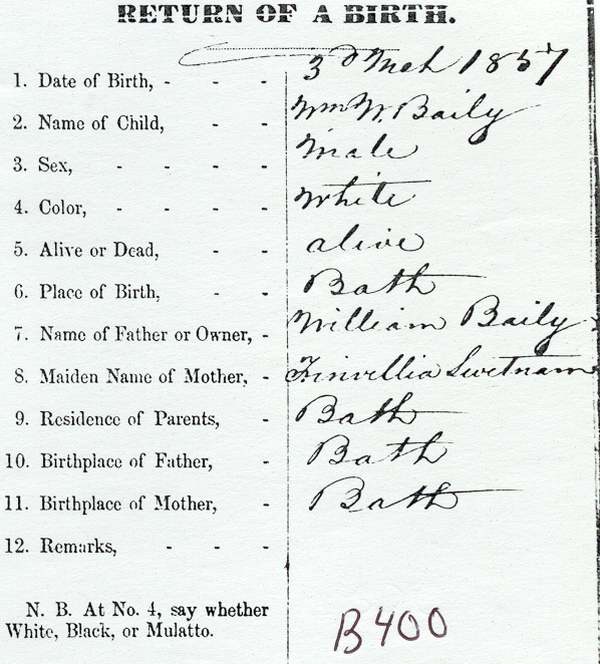 RETURN OF A BIRTH.
1. Date of Birth, - - - 3d Mch 1857
2. Name of Child, - - Wm W. Baily
3. Sex, - - - - Male
4. Color, - - - - White
5. Alive or Dead, - - alive
6. Place of Birth, - - Bath
7. Name of Father or Owner, - William Baily
8. Maiden Name of Mother, - Swetnam
9. Residence of Parents, - Bath
10. Birthplace of Father, - Bath
11. Birthplace of Mother, - Bath
12. Remarks, - - -
N. B. At No. 4, say whether
White, Black, or Mulatto.
B400